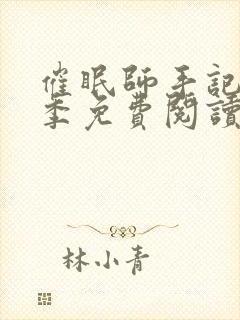 催眠師手記
季免費閱讀
林小青